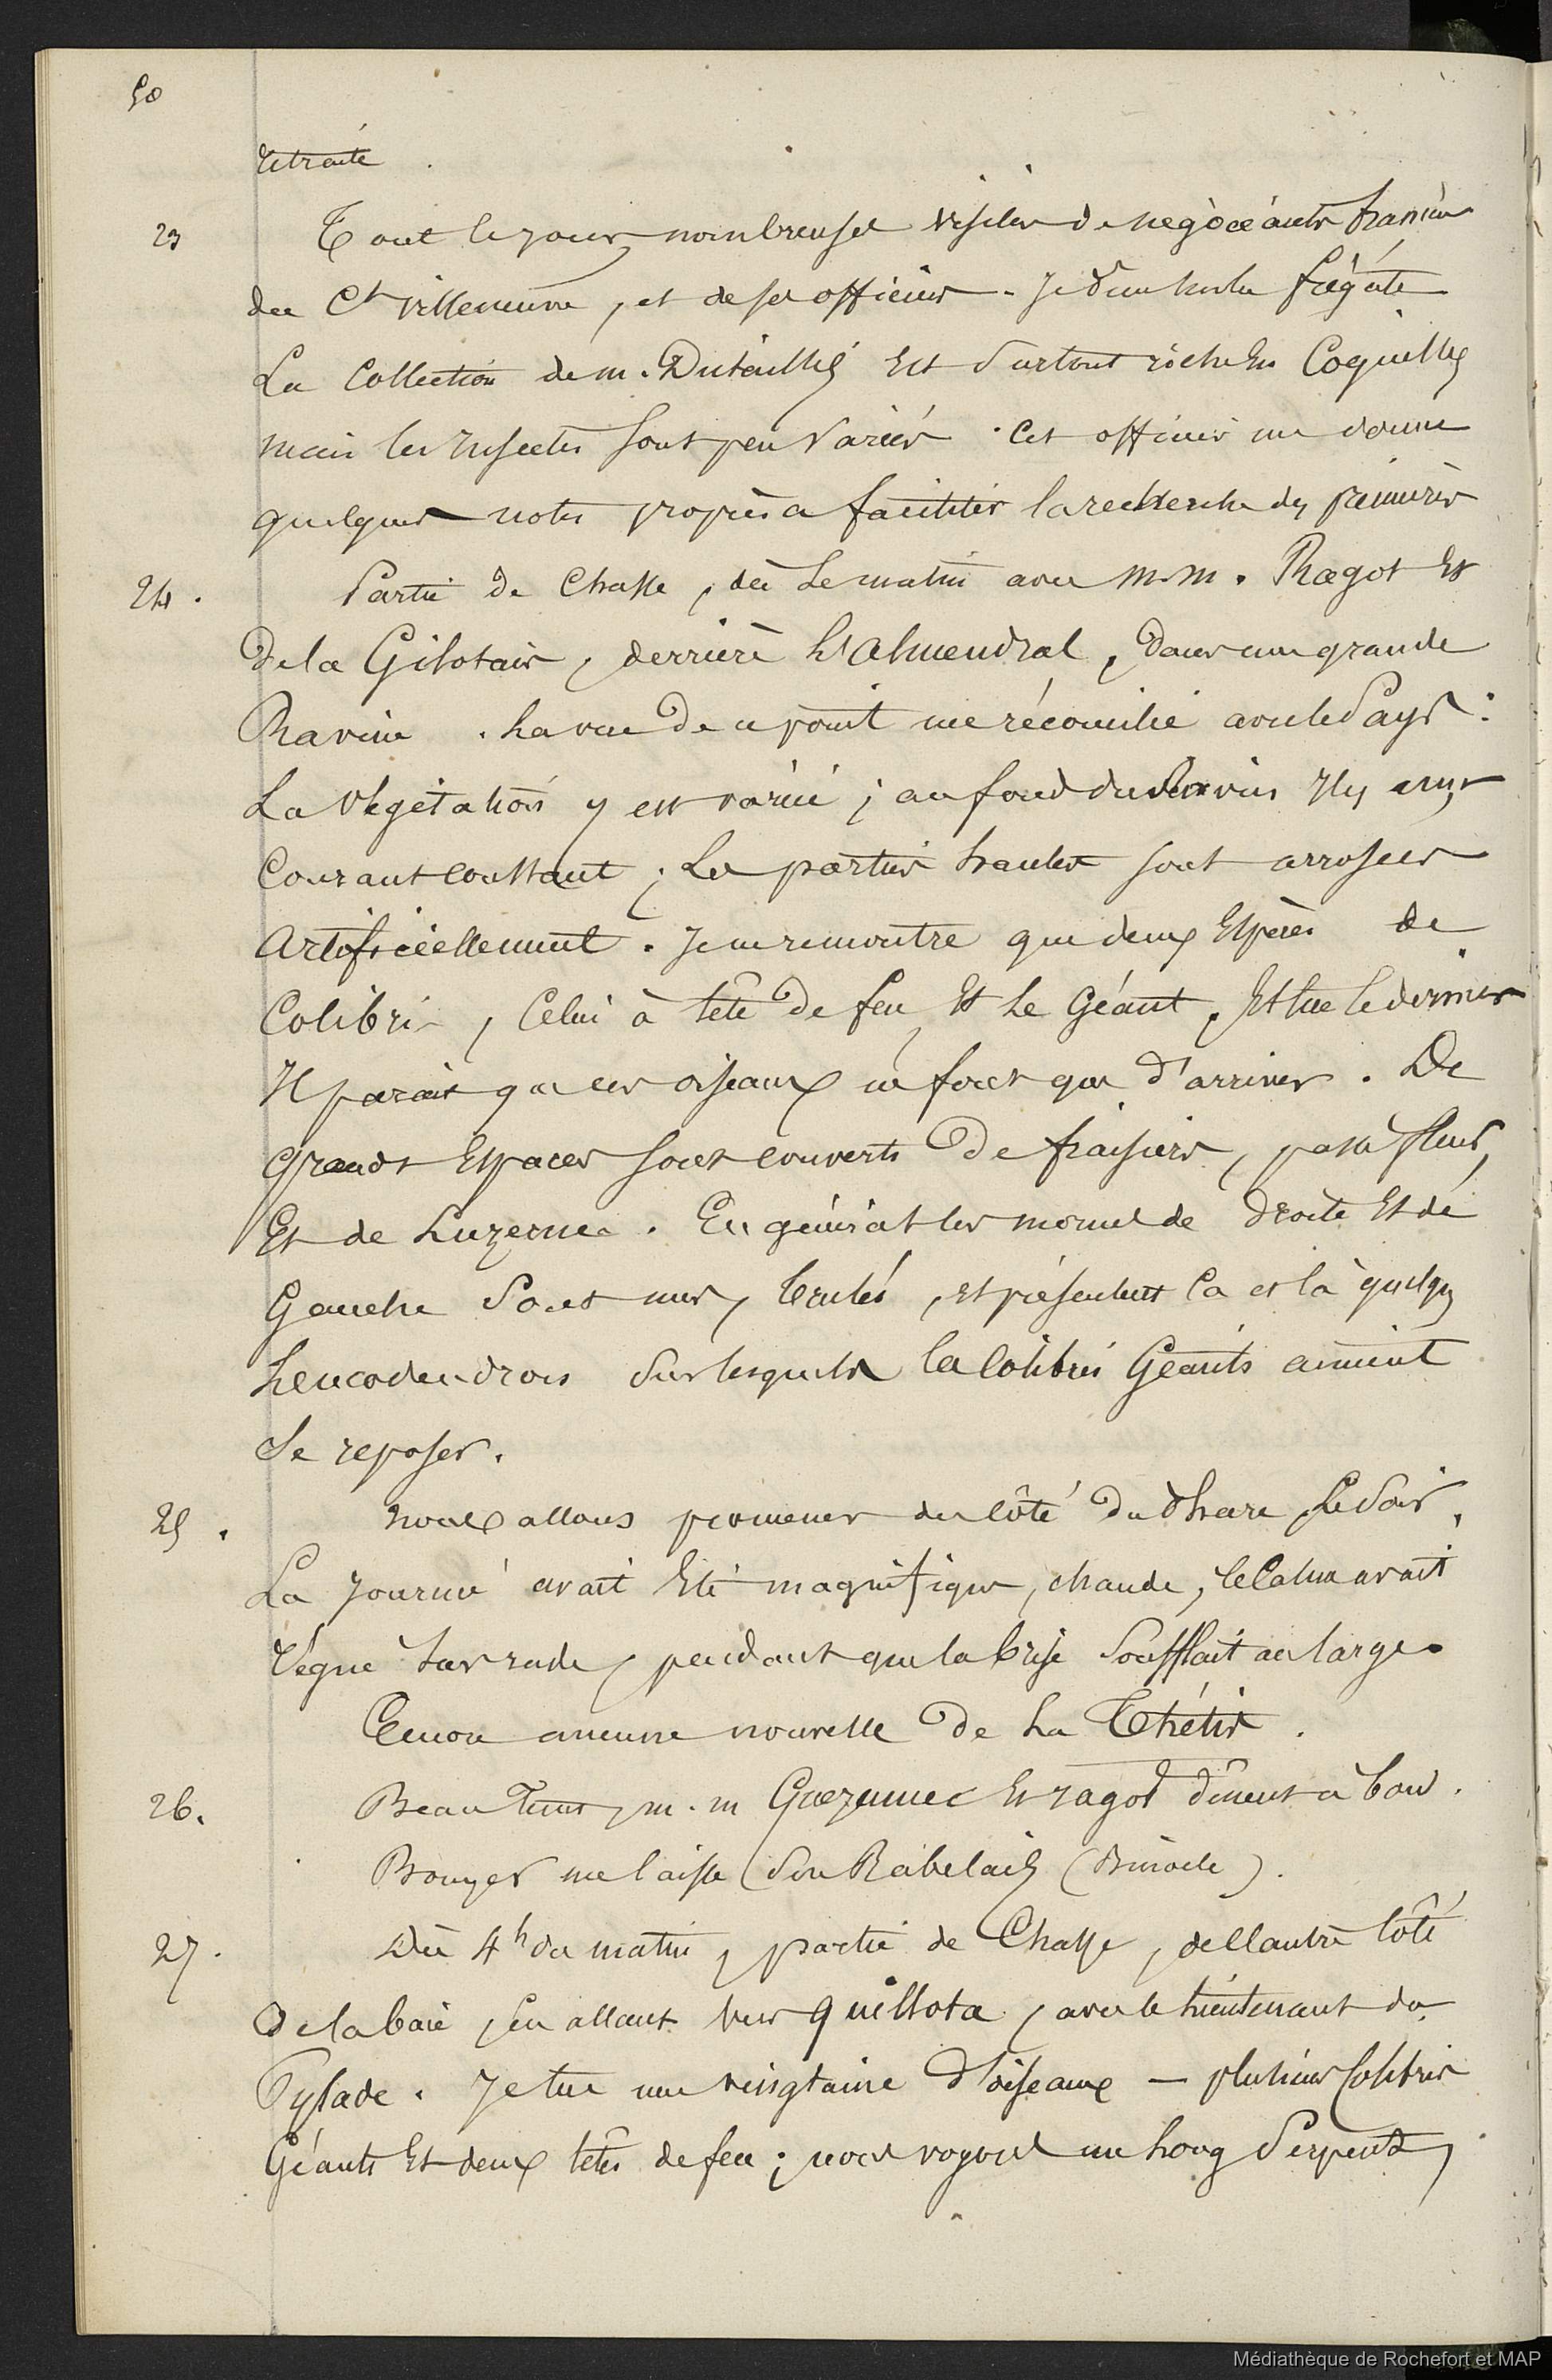 50
retraite
23 Tout le jour, nombreuses visites de négociants français
du Ct villeneuve, et de ses officiers. Je dine sur la frégate
La Collection de m. Dutaillis Est surtout riche En Coquilles
mais les Insectes sont peu variés. Cet officier me donne
quelques notes propres a faciliter la recherche des premières
24. Partie de Chasse, dès Le matin avec M.M. Ragot Et
de la Gilotais, derrière L'almendral, dans une grande
Ravine. La vue de ce point me réconcilie avec le Pays :
La végétation y est variée ; au fond du Ravin Il y a un
Courant constant ; Les parties hautes sont arrosées
Artificiellement. Je ne rencontre que deux Espèces de
Colibris, Celui à tête de feu Et Le Géant. Je tue le dernier
Il parait que ces oiseaux ne font que d'arriver. De
grands Espaces sont couverts De fraisiers, pas en fleurs,
Et de Luzerne. En général les mornes de Droite Et de
Gauche Sont nus, brulés, et présentent Ca et là quelques
Leucodendrons sur lesquels les Colibris Géants aiment
Se reposer.
25. nous allons promener du côté du Phare, Le Soir,
La journée avait Eté magnifique, chaude, le Calme avait
régné sur rade, pendant que la brise Soufflait au large.
Encore aucune nouvelle De La Thétis.
26. Beau Tems, m.m Guezennec Et ragot dînent à bord.
Brouyer me laisse Son Rabelais
27. Dès 4h du matin, partie de Chasse, de l'autre Côté
de la baie, en allant vers quillota, avec le Lieutenant du
Pylade. Je tue une vingtaine d'oiseaux — plusieurs Colibris
Géants Et deux têtes de feu ; nous voyons un Long Serpent,
Médiathèque de Rochefort et MAP